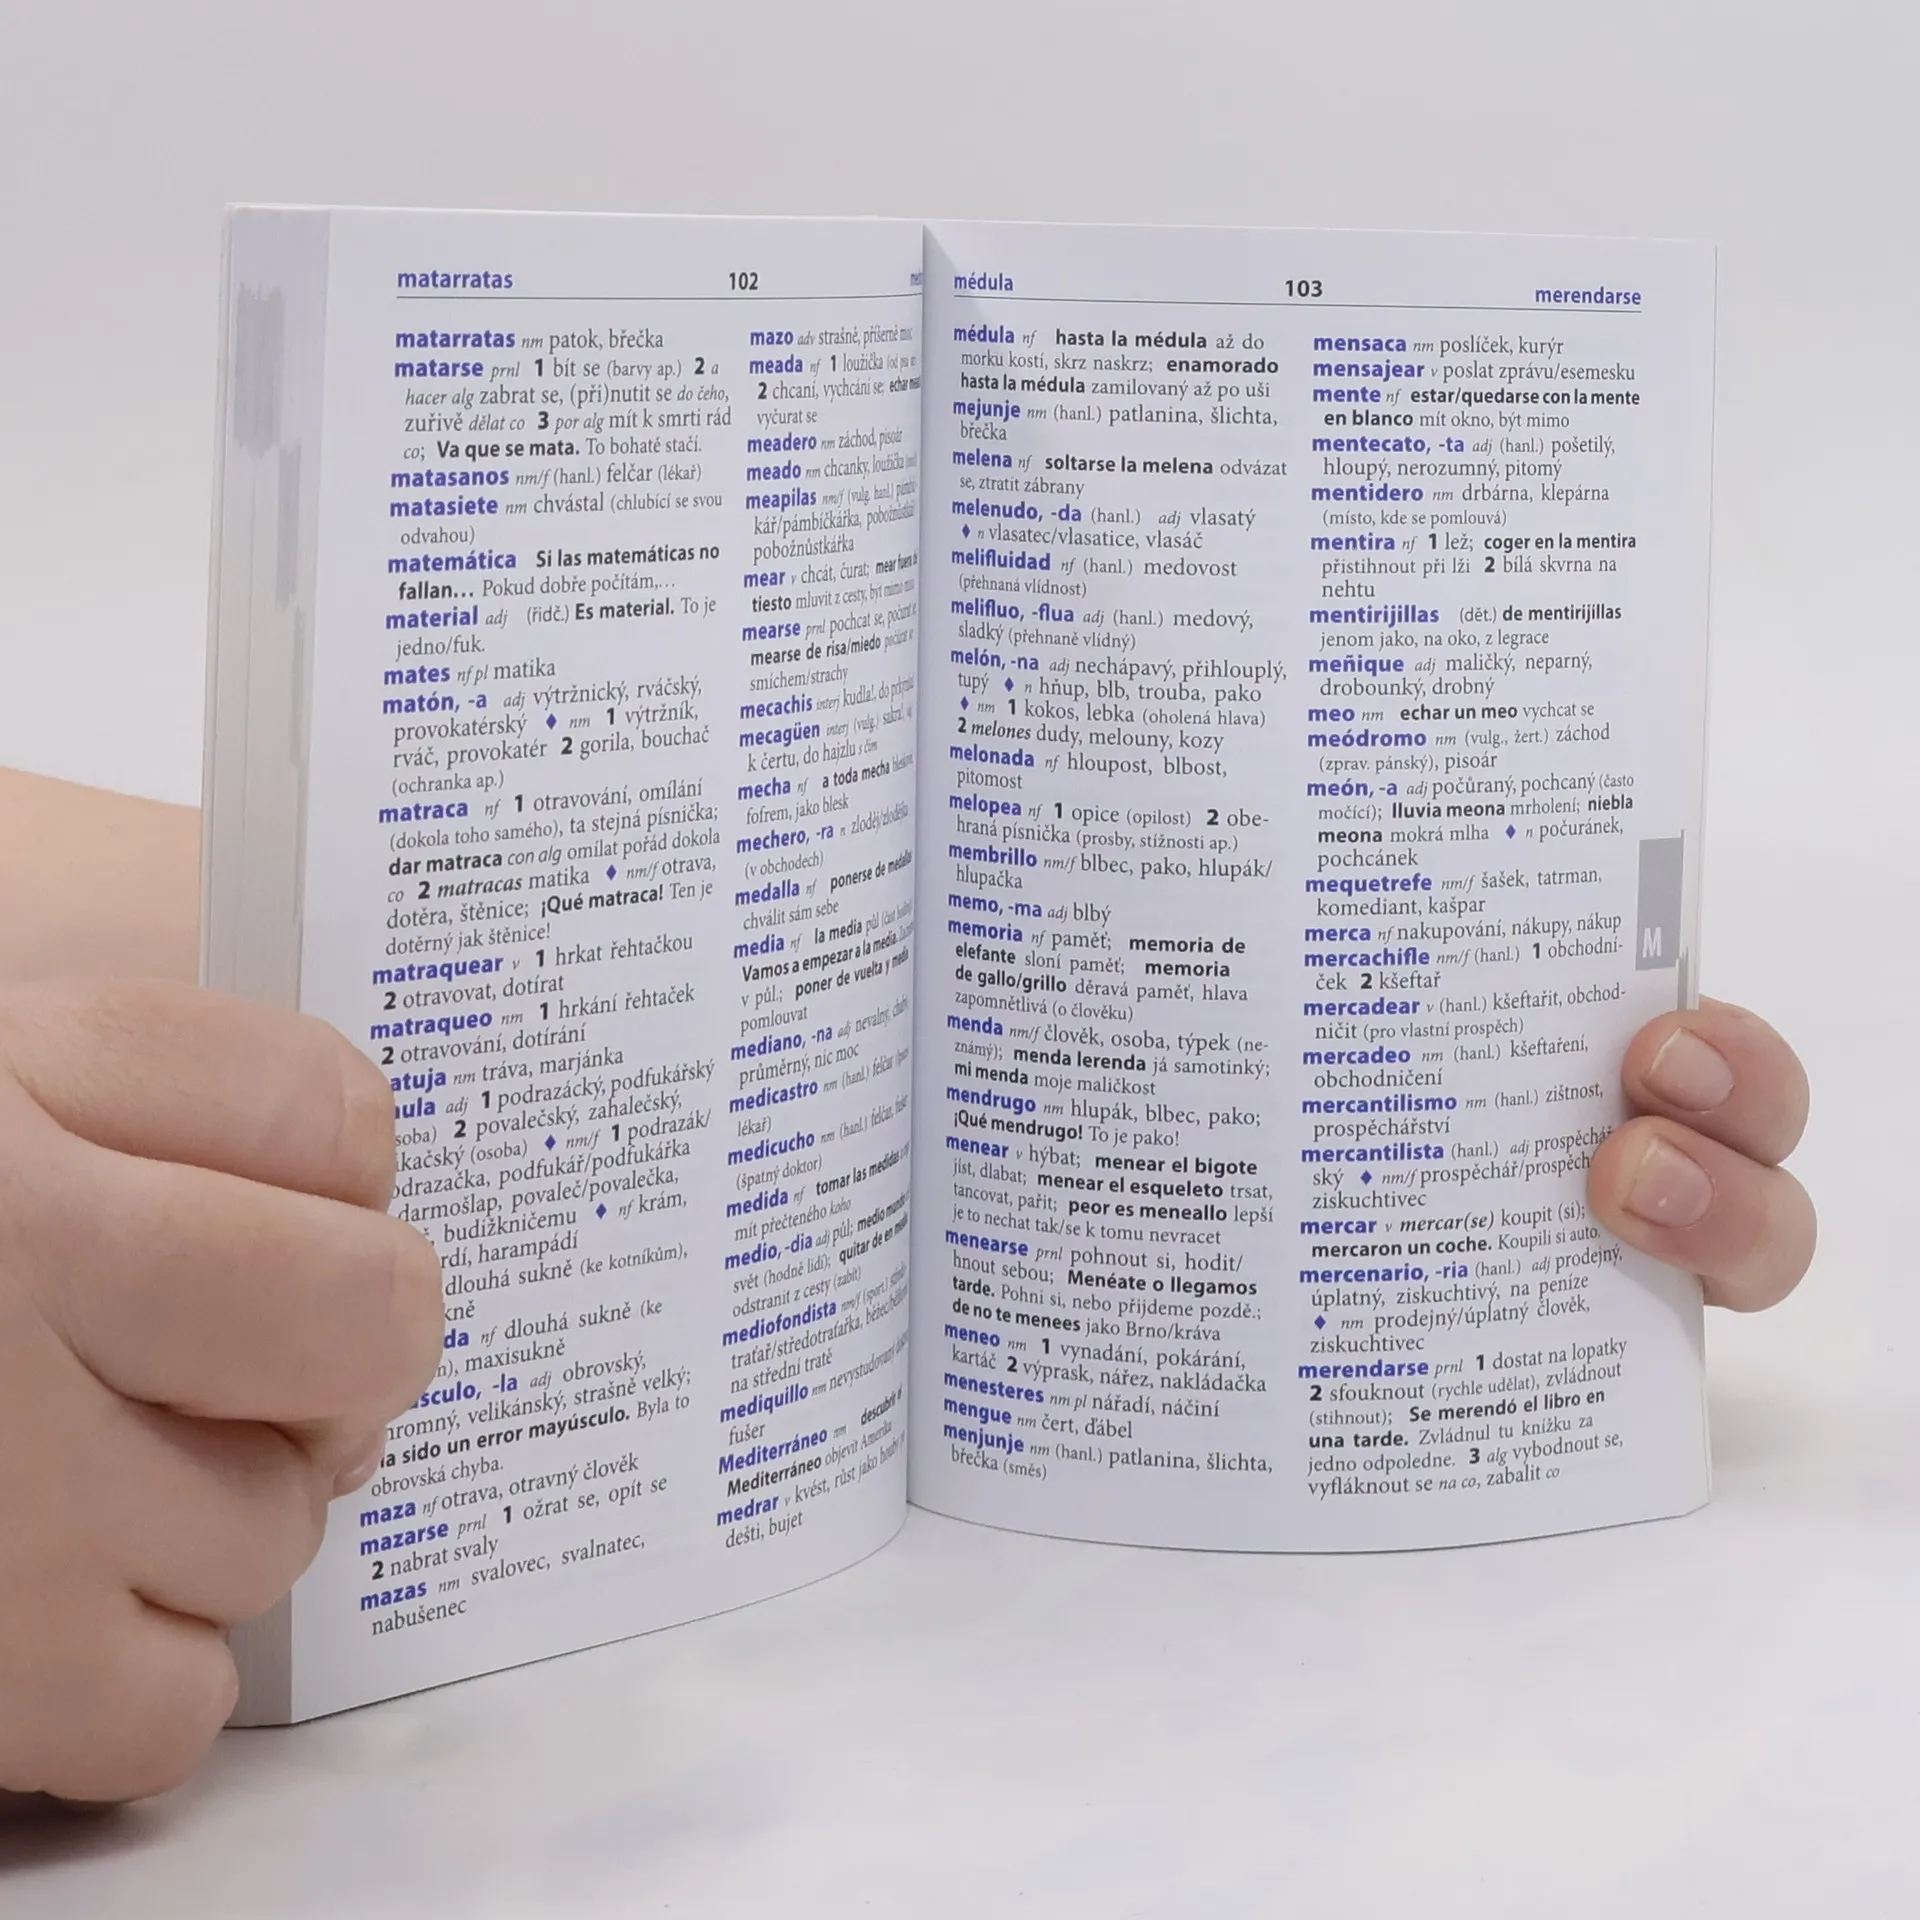 matarratas 102
matarratas nm patok, břečka
matarse prnl 1 bít se (barvy ap.) 2 a
hacer alg zabrat se, (při)nutit se do čeho,
zuřivě dělat co 3 por alg mít k smrti rád
co; Va que se mata. To bohatě stačí.
matasanos nm/f (hanl.) felčar (lékař)
matasiete nm chvástal (chlubící se svou
odvahou)
matemática Si las matemáticas no
fallan... Pokud dobře počítám,...
material adj (řidč.) Es material. To je
jedno/fuk.
mates nf pl matika
matón, -a adj výtržnický, rváčský,
provokatérský ♦ nm 1 výtržník,
rváč, provokatér 2 gorila, bouchač
(ochranka ap.)
matraca nf 1 otravování, omílání
(dokola toho samého), ta stejná písnička;
dar matraca con alg omílat pořád dokola
co 2 matracas matika ♦ nm/f otrava,
dotěra, štěnice; ¡Qué matraca! Ten je
dotěrný jak štěnice!
matraquear v 1 hrkat řehtačkou
2 otravovat, dotírat
matraqueo nm 1 hrkání řehtaček
2 otravování, dotírání
atuja nm tráva, marjánka
ula adj 1 podrazácký, podfukářský
soba) 2 povalečský, zahalečský,
kačský (osoba) ♦ nm/f 1 podrazák/
odrazačka, podfukář/podfukářka
darmošlap, povaleč/povalečka,
budižkničemu ♦ nf krám,
rdí, harampádí
dlouhá sukně (ke kotníkům),
kně
da nf dlouhá sukně (ke
maxisukně
sculo, -la adj obrovský,
hromný, velikánský, strašně velký;
a sido un error mayúsculo. Byla to
obrovská chyba.
maza nf otrava, otravný člověk
mazarse prnl 1 ožrat se, opít se
2 nabrat svaly
mazas nm svalovec, svalnatec,
nabušenec
mazo adv strašně, příšerně moc
meada nf 1 loužička
2 chcaní, vychcání se;
vyčurat se
meadero nm záchod, pisoár
meado nm chcanky, loužička
meapilas nm/f (vulg. hanl.)
kář/pámbíčkářka, pobožnůstkář
pobožnůstkářka
mear v chcát, čurat; mear fuera
tiesto mluvit z cesty, být mimo
mearse prnl pochcat se,
mearse de risa/miedo
smíchem/strachy
mecachis interj kudla!,
mecagüen interj (vulg.) sakra!,
k čertu, do hajzlu s čím
mecha nf a toda mecha
fofrem, jako blesk
mechero, -ra n zloděj/zlodějka
(v obchodech)
medalla nf ponerse de medallas
chválit sám sebe
media nf la media půl
Vamos a empezar a la media.
v půl.; poner de vuelta y media
pomlouvat
mediano, -na adj nevalný,
průměrný, nic moc
medicastro nm (hanl.) felčar
lékař)
medicucho nm (hanl.) felčar,
(špatný doktor)
medida nf tomar las medidas
mít přečteného koho
medio, -dia adj půl; medio mundo
svět (hodně lidí); quitar de en medio
odstranit z cesty (zabít)
mediofondista nm/f (sport.)
trařař/středotraťařka,
na střední tratě
mediquillo nm nevystudovaný
fušer
Mediterráneo nm descubrir el
Mediterráneo objevit Ameriku
medrar v kvést, růst jako houby
dešti, bujet
médula 103 merendarse
médula nf hasta la médula až do
morku kostí, skrz naskrz; enamorado
hasta la médula zamilovaný až po uši
mejunje nm (hanl.) patlanina, šlichta,
břečka
melena nf soltarse la melena odvázat
se, ztratit zábrany
melenudo, -da (hanl.) adj vlasatý
♦ n vlasatec/vlasatice, vlasáč
melifluidad nf (hanl.) medovost
(přehnaná vlídnost)
melifluo, -flua adj (hanl.) medový,
sladký (přehnaně vlídný)
melón, -na adj nechápavý, přihlouplý,
tupý ♦ n hňup, blb, trouba, pako
♦ nm 1 kokos, lebka (oholená hlava)
2 melones dudy, melouny, kozy
melonada nf hloupost, blbost,
pitomost
melopea nf 1 opice (opilost) 2 obe-
hraná písnička (prosby, stížnosti ap.)
membrillo nm/f blbec, pako, hlupák/
hlupačka
memo, -ma adj blbý
memoria nf paměť; memoria de
elefante sloní paměť; memoria
de gallo/grillo děravá paměť, hlava
zapomnětlivá (o člověku)
menda nm/f člověk, osoba, týpek (ne-
známý); menda lerenda já samotinký;
mi menda moje maličkost
mendrugo nm hlupák, blbec, pako;
¡Qué mendrugo! To je pako!
menear v hýbat; menear el bigote
jíst, dlabat; menear el esqueleto trsat,
tancovat, pařit; peor es meneallo lepší
je to nechat tak/se k tomu nevracet
menearse prnl pohnout si, hodit/
hnout sebou; Menéate o llegamos
tarde. Pohni si, nebo přijdeme pozdě.;
de no te menees jako Brno/kráva
meneo nm 1 vynadání, pokárání,
kartáč 2 výprask, nářez, nakládačka
menesteres nm pl nářadí, náčiní
mengue nm čert, ďábel
menjunje nm (hanl.) patlanina, šlichta,
břečka (směs)
mensaca nm poslíček, kurýr
mensajear v poslat zprávu/esemesku
mente nf estar/quedarse con la mente
en blanco mít okno, být mimo
mentecato, -ta adj (hanl.) pošetilý,
hloupý, nerozumný, pitomý
mentidero nm drbárna, klepárna
(místo, kde se pomlouvá)
mentira nf 1 lež; coger en la mentira
přistihnout při lži 2 bílá skvrna na
nehtu
mentirijillas (dět.) de mentirijillas
jenom jako, na oko, z legrace
meñique adj maličký, neparný,
drobounký, drobný
meo nm echar un meo vychcat se
meódromo nm (vulg., žert.) záchod
(zprav. pánský), pisoár
meón, -a adj počůraný, pochcaný (často
močící); lluvia meona mrholení; niebla
meona mokrá mlha ♦ n počuránek,
pochcánek
mequetrefe nm/f šašek, tatrman,
komediant, kašpar
merca nf nakupování, nákupy, nákup
mercachifle nm/f (hanl.) 1 obchodní-
ček 2 kšeftař
mercadear v (hanl.) kšeftařit, obchod-
ničit (pro vlastní prospěch)
mercadeo nm (hanl.) kšeftaření,
obchodničení
mercantilismo nm (hanl.) zištnost,
prospěchářství
mercantilista (hanl.) adj prospěchář-
ský ♦ nm/f prospěchář/prospěch
ziskuchtivec
mercar v mercar(se) koupit (si);
mercaron un coche. Koupili si auto.
mercenario, -ria (hanl.) adj prodejný,
úplatný, ziskuchtivý, na peníze
♦ nm prodejný/úplatný člověk,
ziskuchtivec
merendarse prnl 1 dostat na lopatky
2 sfouknout (rychle udělat), zvládnout
(stihnout); Se merendó el libro en
una tarde. Zvládnul tu knížku za
jedno odpoledne. 3 alg vybodnout se,
vyfláknout se na co, zabalit co
M